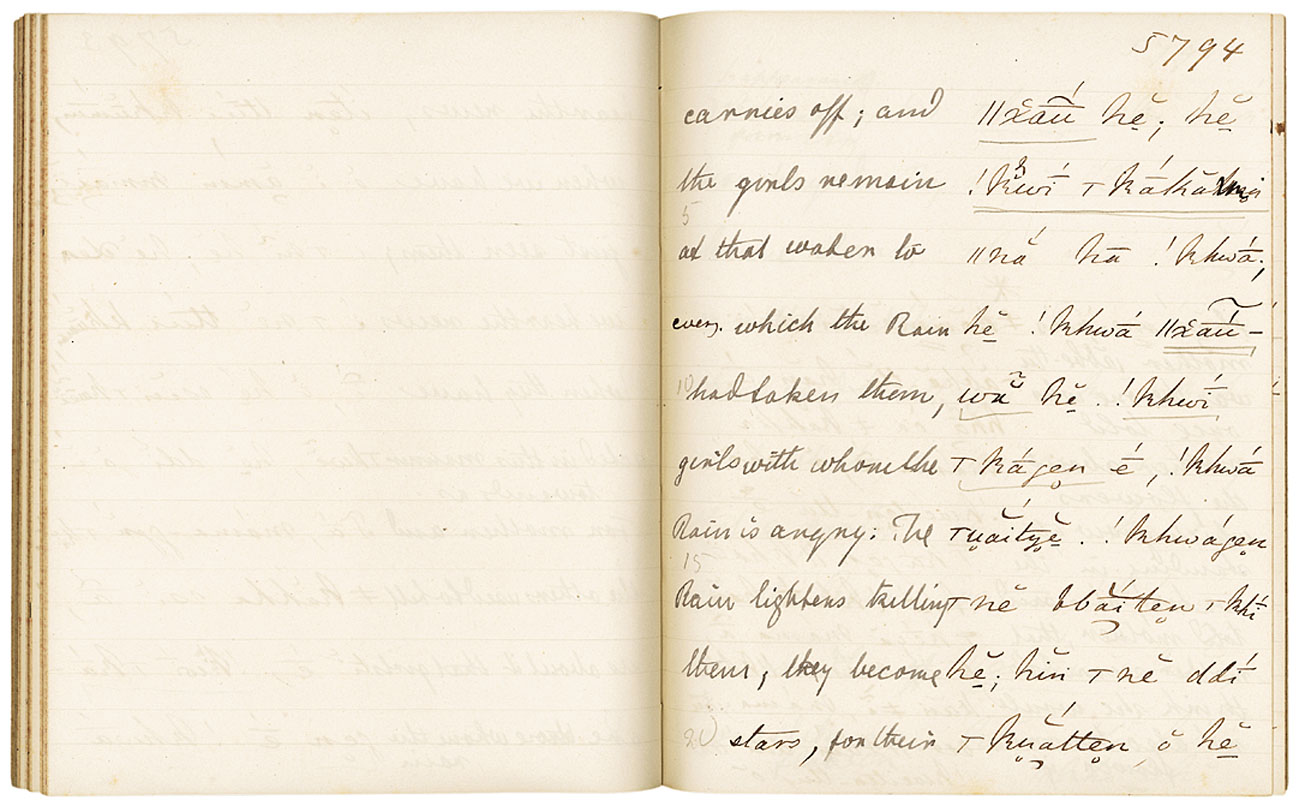 5794
carries off; and ǁx̆ãú hĕ̱; hĕ̱
the girls remain !kwí ⊤ kákă
5
at that water to ǁnắ hā !khwā́;
ever, which the Rain hĕ̱ !khwā́ ǁx̆ãú—
10 had taken them, wẵ hĕ̱. !khwí
girls with whom the ⊤ kágen é, !khwā́
Rain is angry: The ⊤ uăity̯ĕ̱. !khwágen
15
Rain lightens killing ⊤ nĕ bbăiten ⊤ khí
them, they become hĕ̱; hĭn ⊤ nĕ ddí
20 stars, for their ⊤ kuátten, ŏ hĕ̱